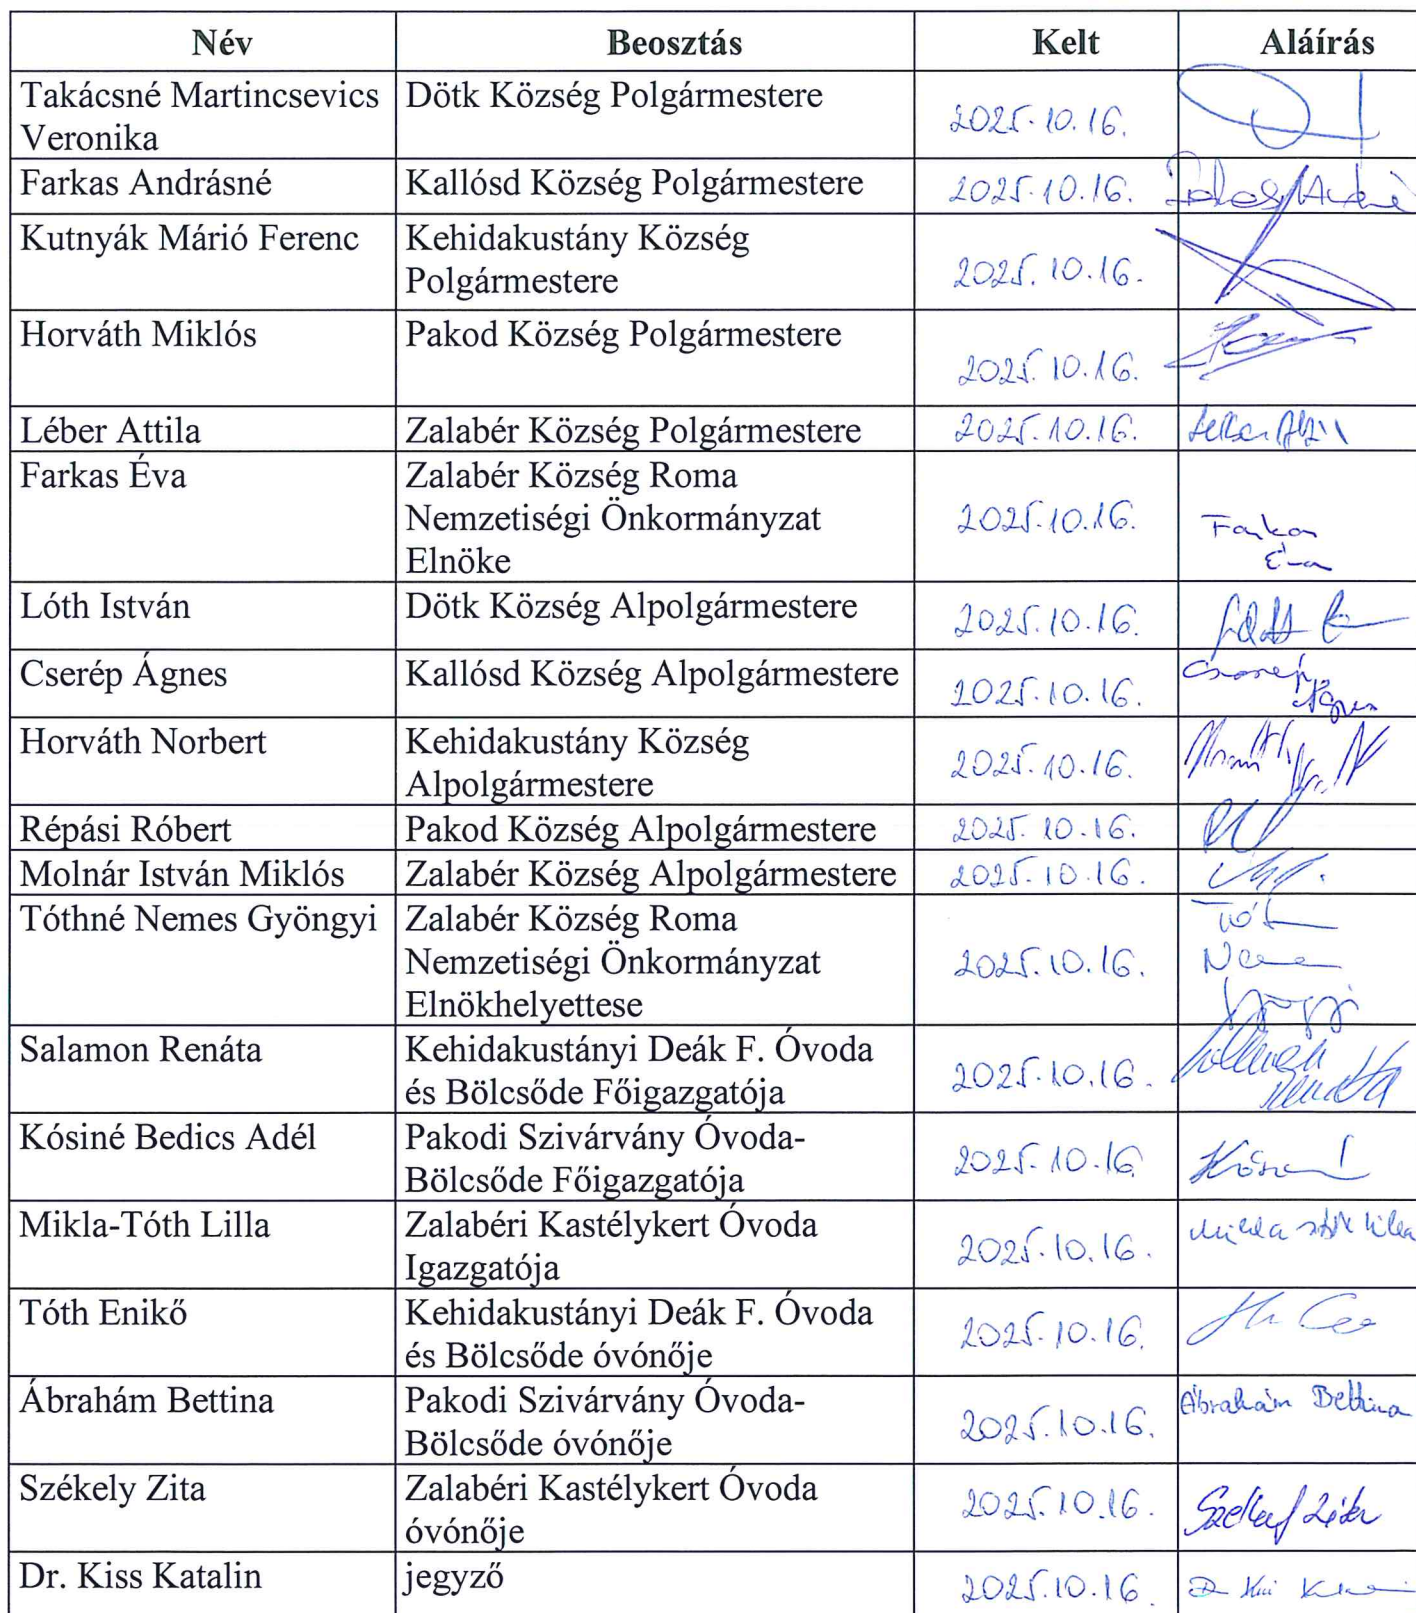 Név Beosztás Kelt Aláírás
Takácsné Martincsevics Dötk Község Polgármestere
Veronika 2025.10.16.
Farkas Andrásné Kallósd Község Polgármestere 2025.10.16.
Kutnyák Márió Ferenc Kehidakustány Község
Polgármestere 2025.10.16.
Horváth Miklós Pakod Község Polgármestere
2025.10.16.
Léber Attila Zalabér Község Polgármestere 2025.10.16.
Farkas Éva Zalabér Község Roma
Nemzetiségi Önkormányzat 2025.10.16. Farkas
Elnöke Éva
Lóth István Dötk Község Alpolgármestere 2025.10.16.
Cserép Ágnes Kallósd Község Alpolgármestere 2025.10.16. Cserép
Ágnes
Horváth Norbert Kehidakustány Község
Alpolgármestere 2025.10.16.
Répási Róbert Pakod Község Alpolgármestere 2025.10.16.
Molnár István Miklós Zalabér Község Alpolgármestere 2025.10.16.
Tóthné Nemes Gyöngyi Zalabér Község Roma
Nemzetiségi Önkormányzat 2025.10.16.
Elnökhelyettese
Salamon Renáta Kehidakustányi Deák F. Óvoda
és Bölcsőde Főigazgatója 2025.10.16.
Kósiné Bedics Adél Pakodi Szivárvány Óvoda-
Bölcsőde Főigazgatója 2025.10.16
Mikla-Tóth Lilla Zalabéri Kastélykert Óvoda Mikla-Tóth Lilla
Igazgatója 2025.10.16.
Tóth Enikő Kehidakustányi Deák F. Óvoda
és Bölcsőde óvónője 2025.10.16.
Ábrahám Bettina Pakodi Szivárvány Óvoda- Ábrahám Bettina
Bölcsőde óvónője 2025.10.16.
Székely Zita Zalabéri Kastélykert Óvoda 2025.10.16. Székely Zita
óvónője
Dr. Kiss Katalin jegyző 2025.10.16.